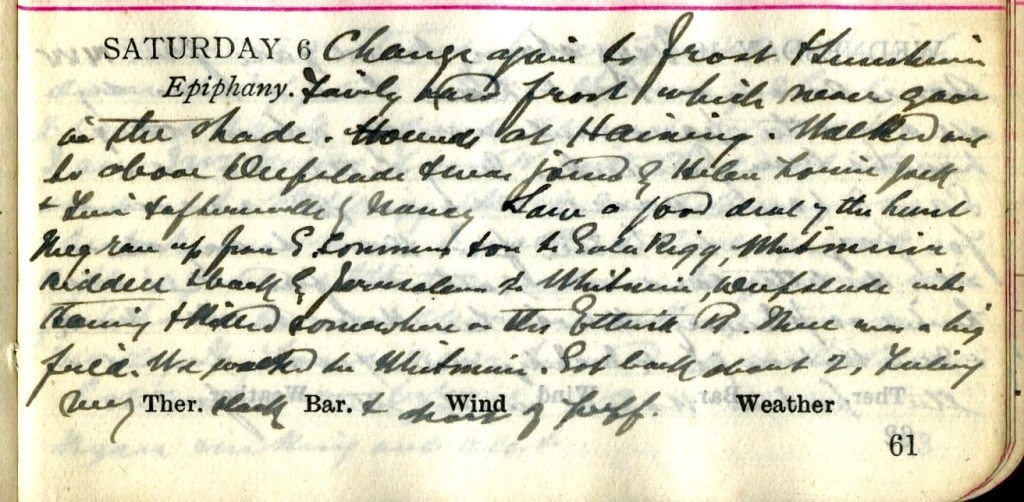 SATURDAY 6 Change again to frost & sunshine
Epiphany. Fairly hard frost which never gave
in the shade. Hounds at Haining. Walked
to above Deepslade & was joined by Helen Jack
& & afterwards by Nancy Saw a good deal of the hunt
They ran up from E. Common & on to Rigg, Whitmuir
Riddell & back by Jerusalem to Whitmuir, Deepslade into
Haining & killed somewhere on the Ettrick Rd. There was a big
field. We walked to Whitmuir. Got back about 2, feeling
very Ther. slack Bar. & short Wind of puff. Weather
61